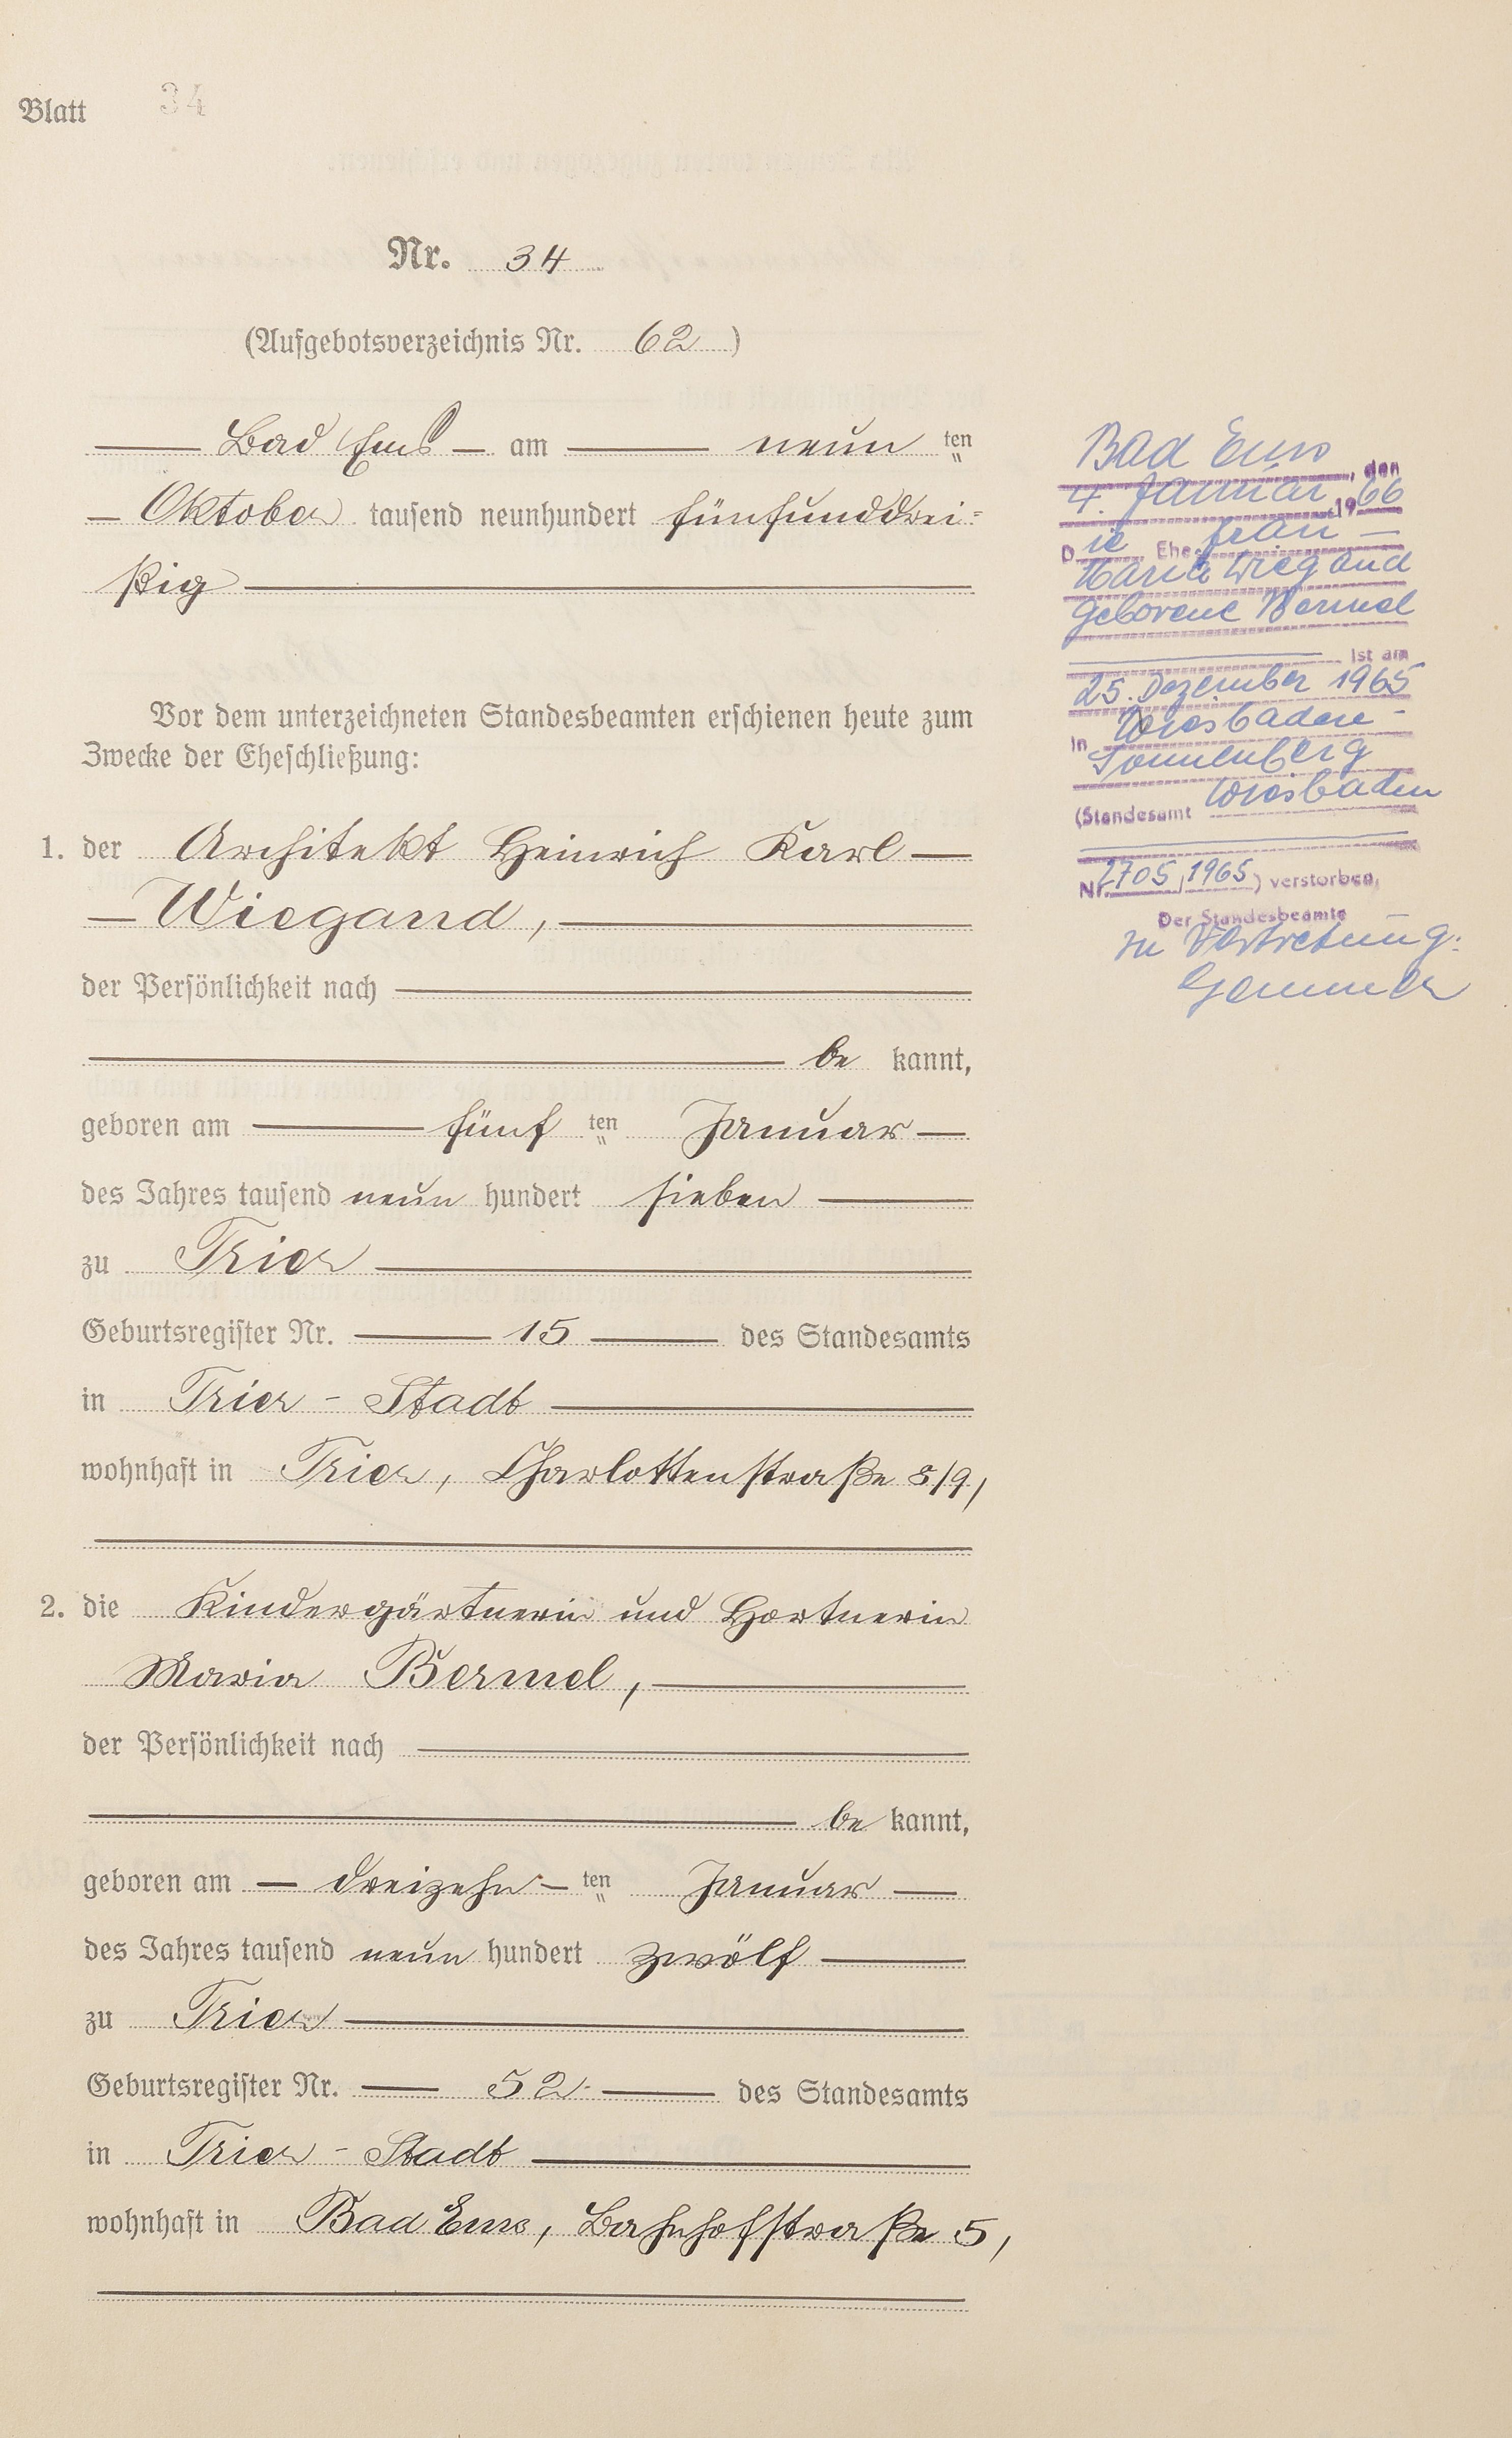 Blatt 34
Nr. 34
(Aufgebotsverzeichnis Nr. 62)
Bad Ems am neun ten
Oktober tausend neunhundert fünfunddrei-
ßig
Vor dem unterzeichneten Standesbeamten erschienen heute zum
Zwecke der Eheschließung:
1. der Architekt Heinrich Karl
Wiegand,
der Persönlichkeit nach
be kannt,
geboren am fünf ten Januar
des Jahres tausend neun hundert sieben
zu Trier
Geburtsregister Nr. 15 des Standesamts
in Trier - Stadt
wohnhaft in Trier, Charlottenstraße 8/9,
2. die Kindergärtnerin und Hortnerin
Maria Bermel,
der Persönlichkeit nach
be kannt,
geboren am dreizehn ten Januar
des Jahres tausend neun hundert zwölf
zu Trier
Geburtsregister Nr. 52 des Standesamts
in Trier - Stadt
wohnhaft in Bad Ems, Bahnhofstraße 5,
Bad Ems, den
4. Januar 1966
Die Ehefrau
Maria Wiegand
geborene Bermel
ist am
25. Dezember 1965
in Wiesbaden-
Sonnenberg
(Standesamt Wiesbaden
Nr. 2705/1965) verstorben.
Der Standesbeamte
In Vertretung: